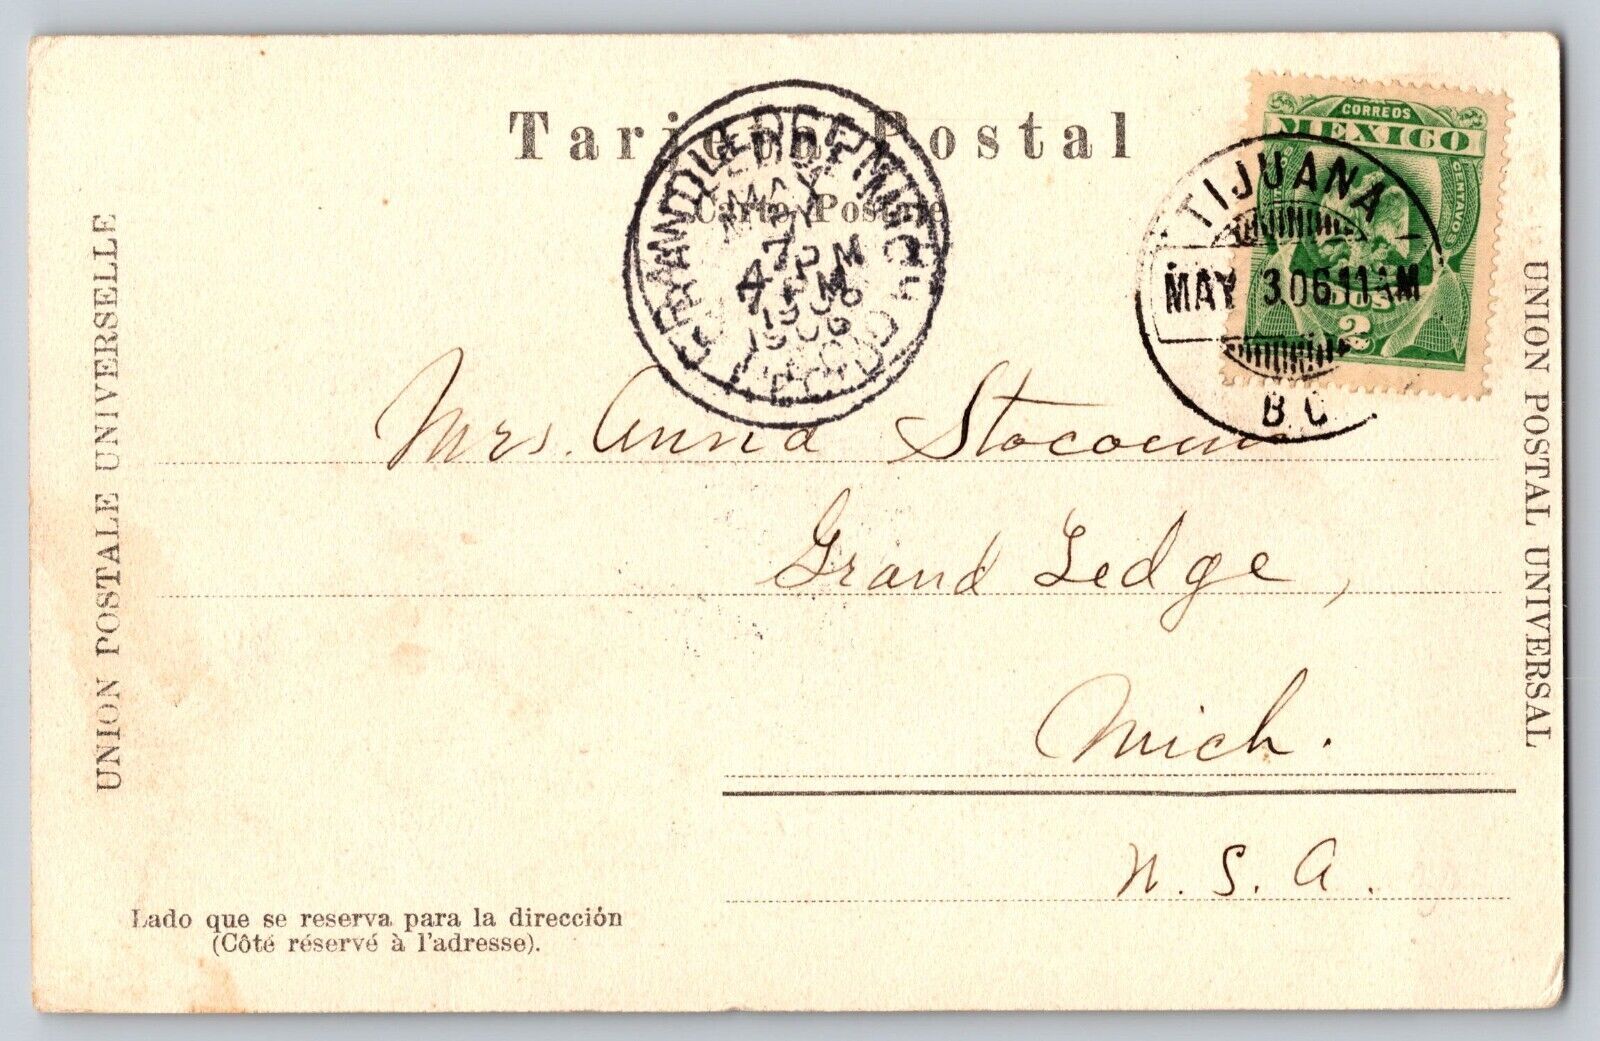 Tarjeta Postal
Carte Postale
GRAND LEDGE, MICH.
MAY
7
4 PM
1906
REC'D.
CORREOS
MEXICO
CENTAVOS
DOS
2
TIJUANA
MAY 3.06.11AM
B.C
UNION POSTALE UNIVERSELLE
UNION POSTAL UNIVERSAL
Mrs. Anna
Grand Ledge,
Mich.
U. S. A.
Lado que se reserva para la dirección
(Côté réservé à l'adresse).